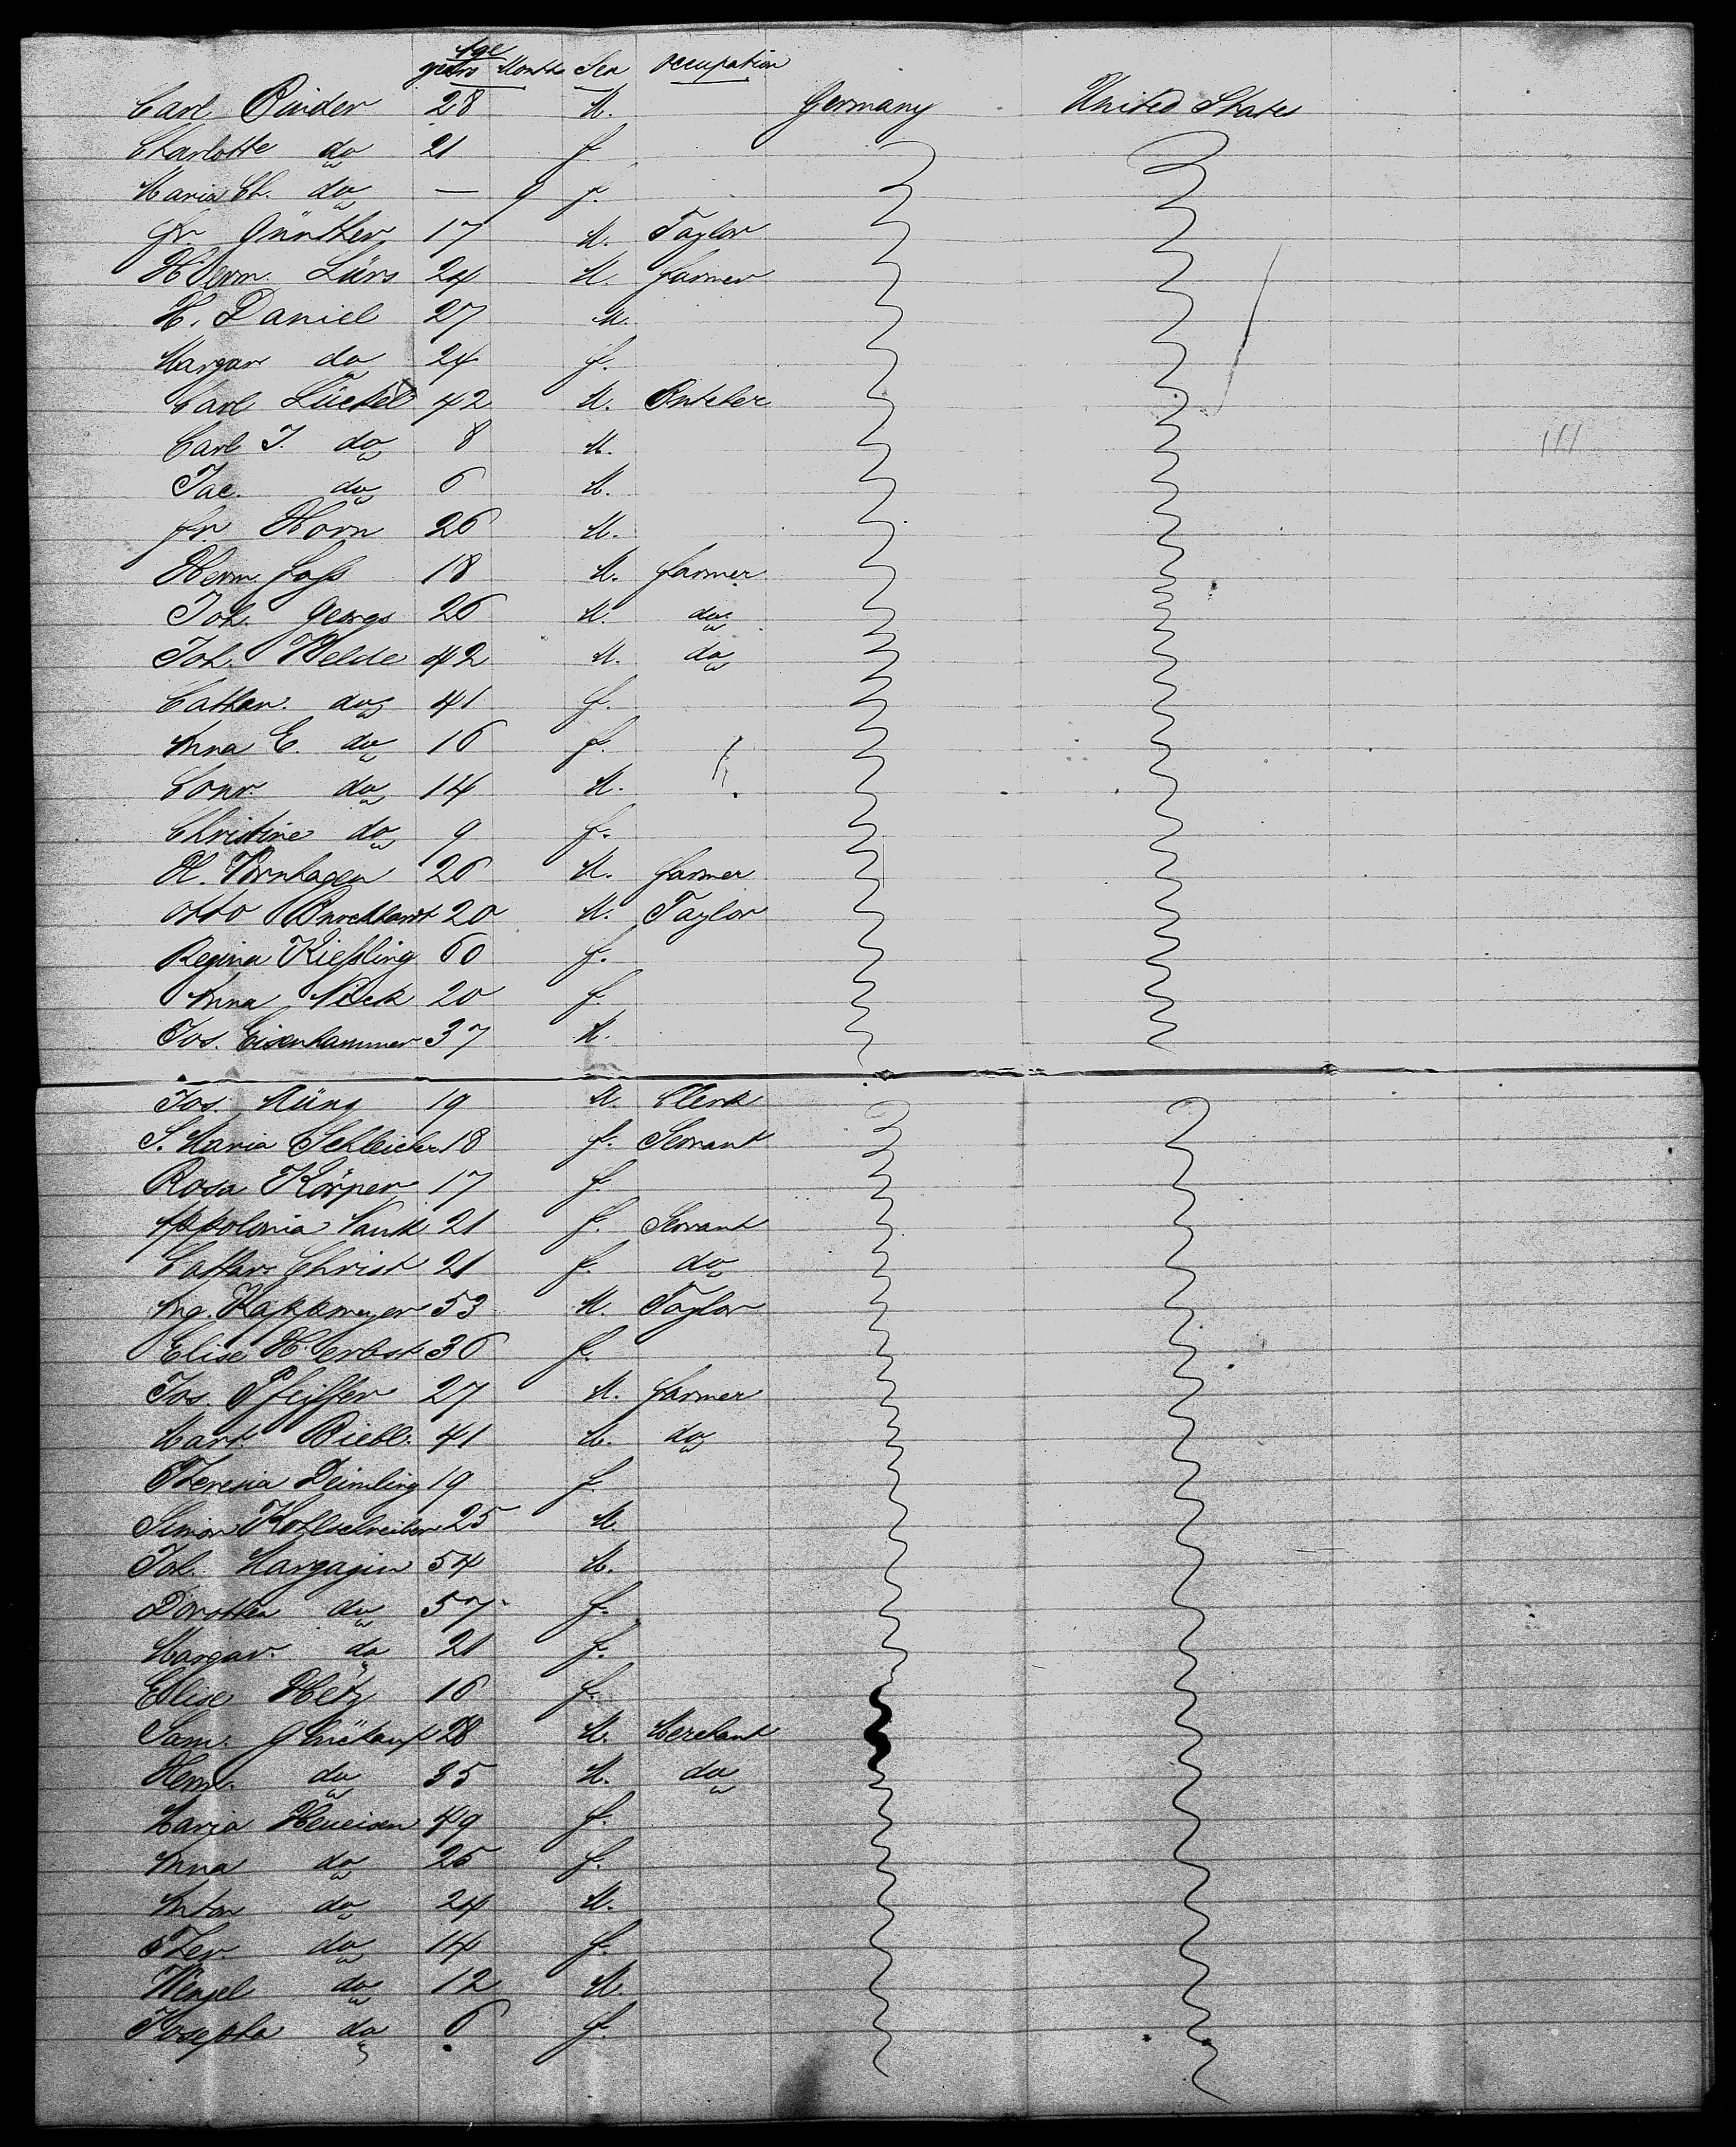 Age
years Months Sex occupation
Carl Rinder 28 M. Germany United States
Charlotte do 21 f.
Maria Ch. do — 9 f.
Fr. Günther 17 M. Taylor
Herm. Lürs 24 M. farmer
H. Daniel 27 M.
Margar do 24 f.
Carl Lückel 42 M. Butcher
Carl J. do 8 M.
Jac. do 6 M.
Fr Horn 26 M.
Herm. Joss 18 M. farmer
Joh. Georgs 26 M. do
Joh. Welde 42 M. do
Cathar. do 41 f.
Anna E. do 16 f.
Conr. do 14 M.
Christine do 9 f.
H. Vornhagen 26 M. farmer
Otto Burckhardt 20 M. Taylor
Regina Kießling 60 f.
Anna Nick 20 f.
Jos. Eisenhammer 37 M.
Jos. Küng 19 M. Clerk
S. Maria Schleicher 18 f. Servant
Rosa Körper 17 f.
Appolonia Vauth 21 f. Servant
Cathar. Christ 21 f. do
Aug. Kappmeyer 53 M. Taylor
Elise Herbst 36 f.
Jos. Pfeiffer 27 M. farmer
Mart. Biebl. 41 M. do
Theresia Deimling 19 f.
Simon Kohlschreiber 25 M.
Joh. Margagin 54 M.
Dorothea do 57 f.
Margar. do 21 f.
Elise Hetz 16 f.
Sam. Glückauf 28 M. Merchant
Herm. do 35 M. do
Maria Heueisen 49 f.
Anna do 25 f.
Anton do 24 M.
Ther. do 14 f.
Wenzel do 12 M.
Josepha do 6 f.